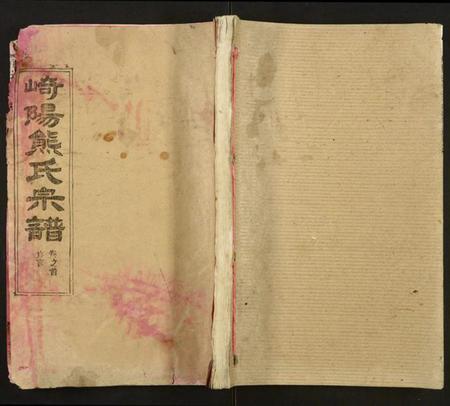 崎陽熊氏宗譜
卷之首